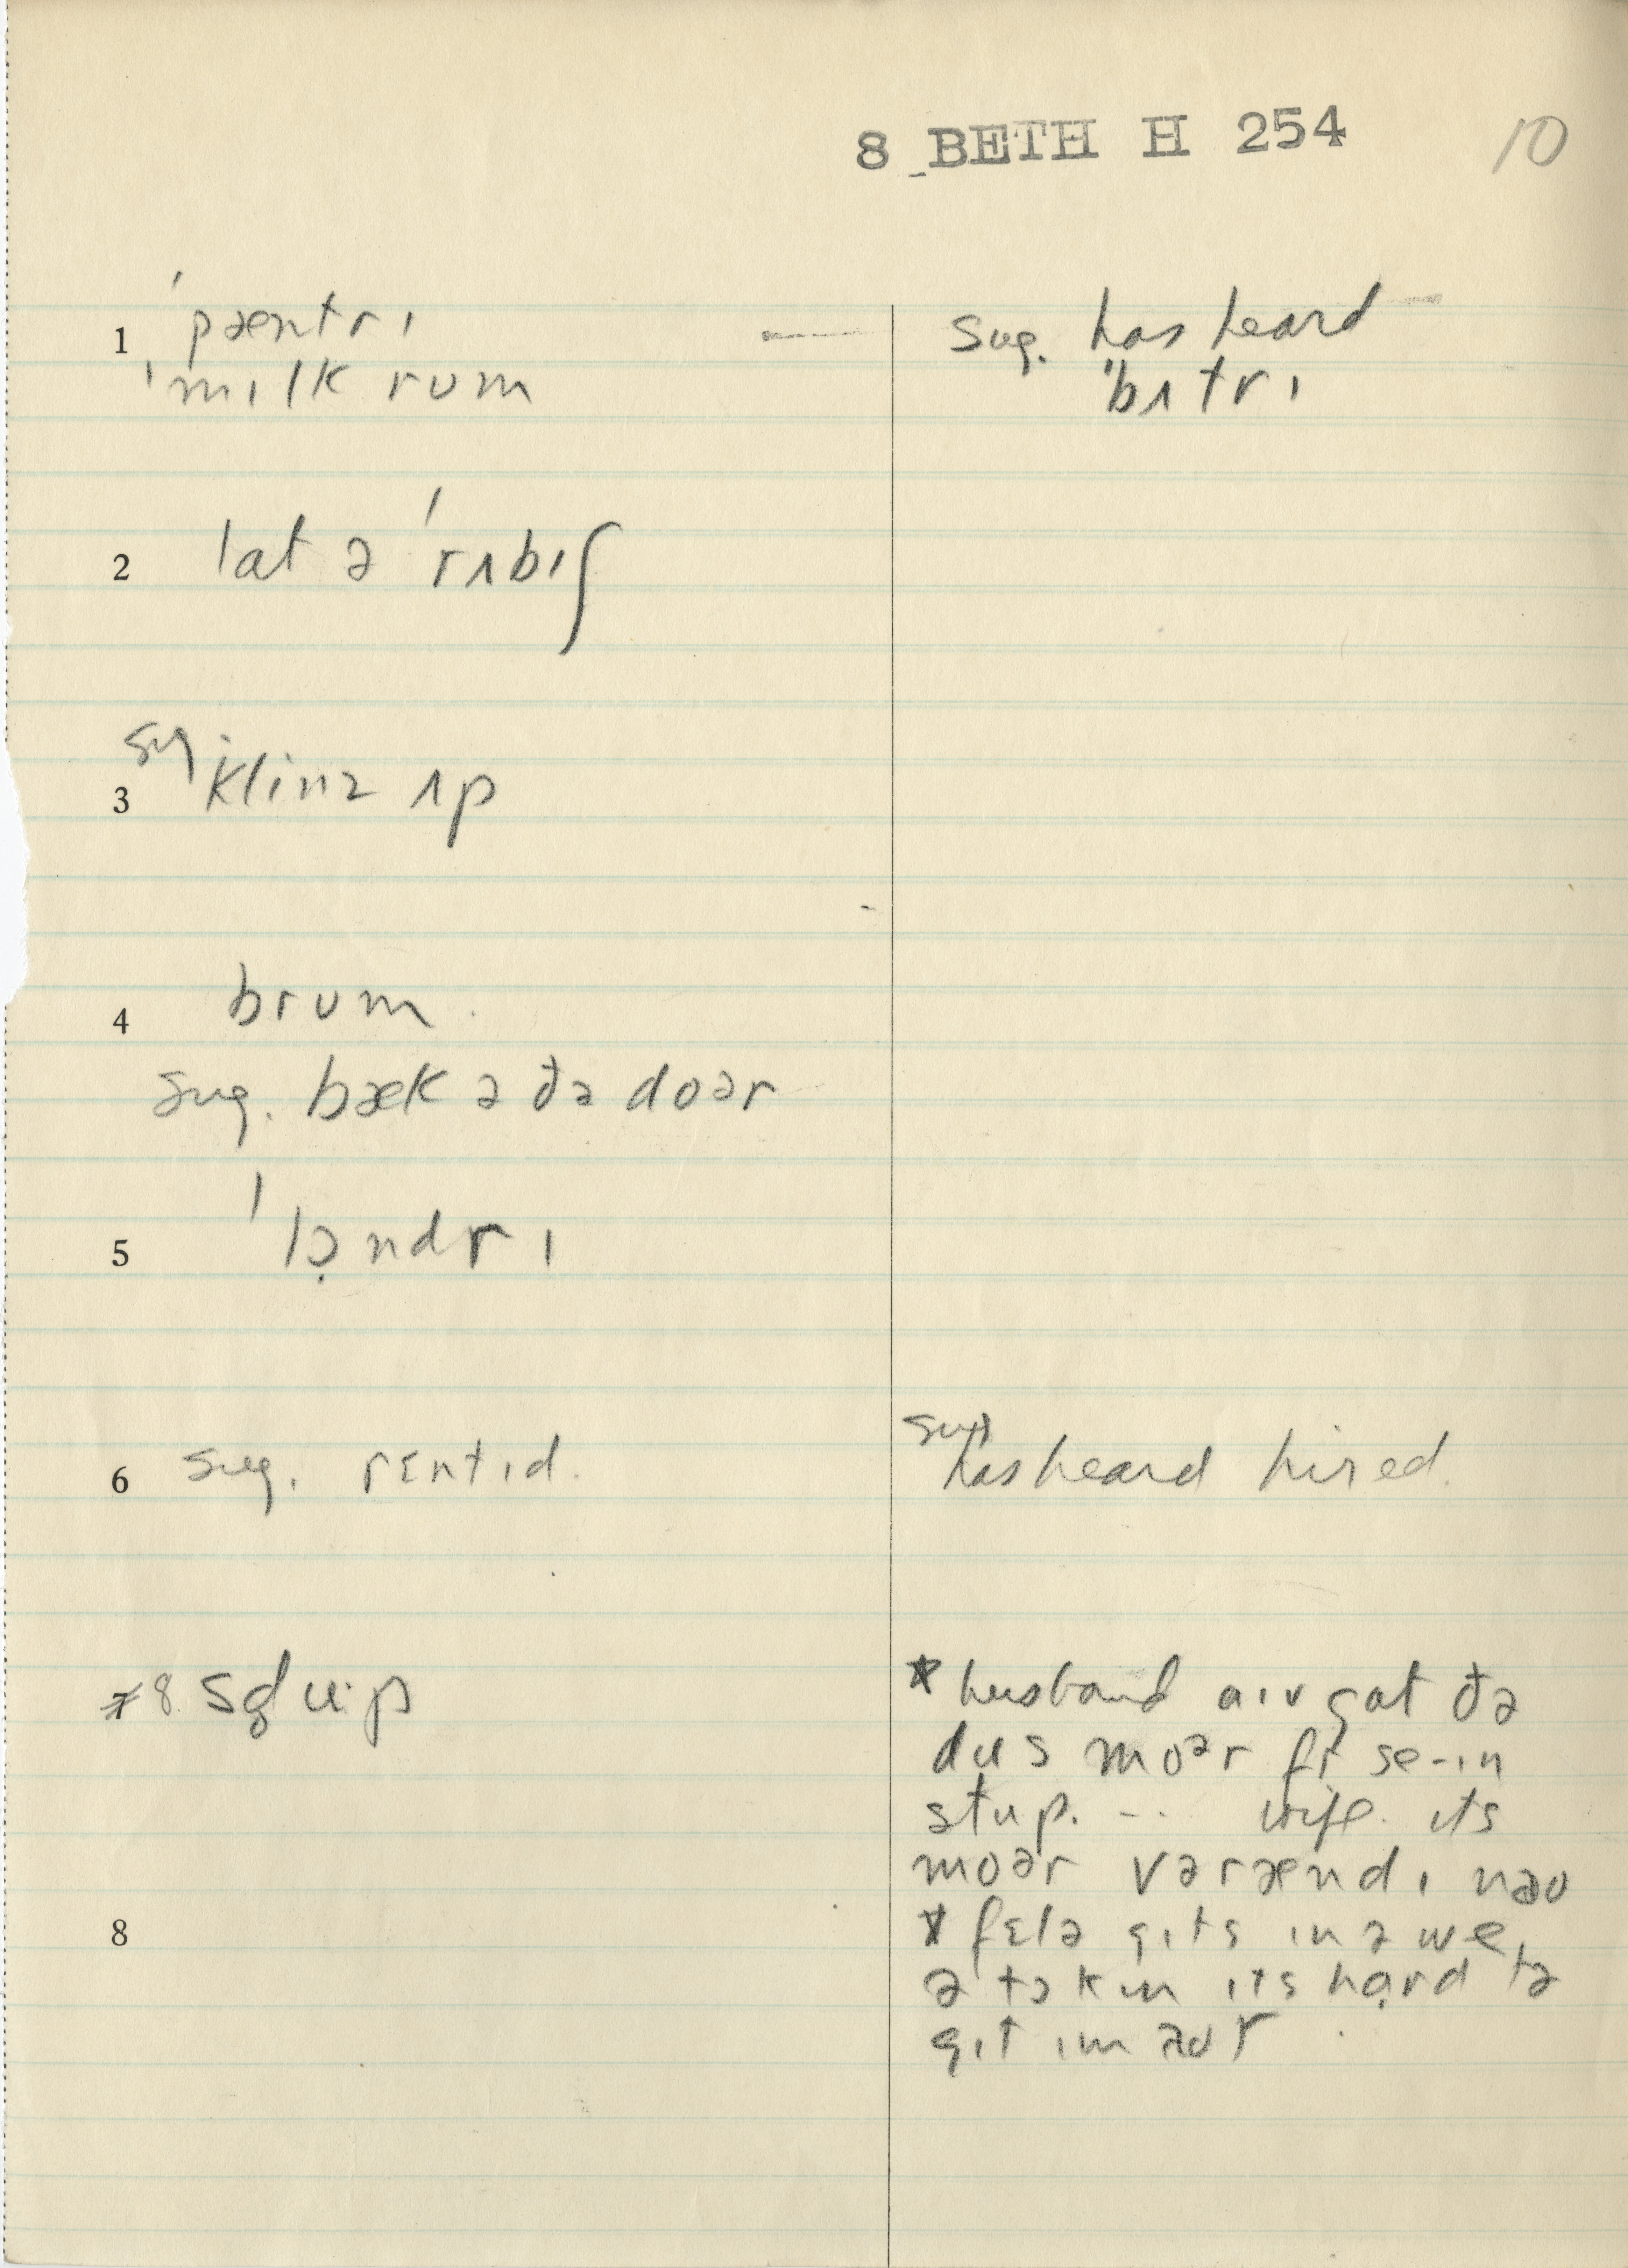 8 BETH H 254 10
1 ˈpæntrɪ
ˈmɪlk rum
sug. has heard
ˈbʌtrɪ
2 lat ə ˈrʌbɪʃ
3 sug klinz ʌp
4 brum.
sug. bæk ə ðə doər
5 ˈlɔ̣ndrɪ
6 sug. rɛntɪd.
sug has heard hired.
8
* husband aɪv gat ðə
dus moər fr se-ɪn
stup. -- wife. ɪts
moər vərændɪ nəʊ
8
* fɛlə gɪts in ə we
ə tɔkin ɪts hạrd tə
gɪt ɪm əʊt